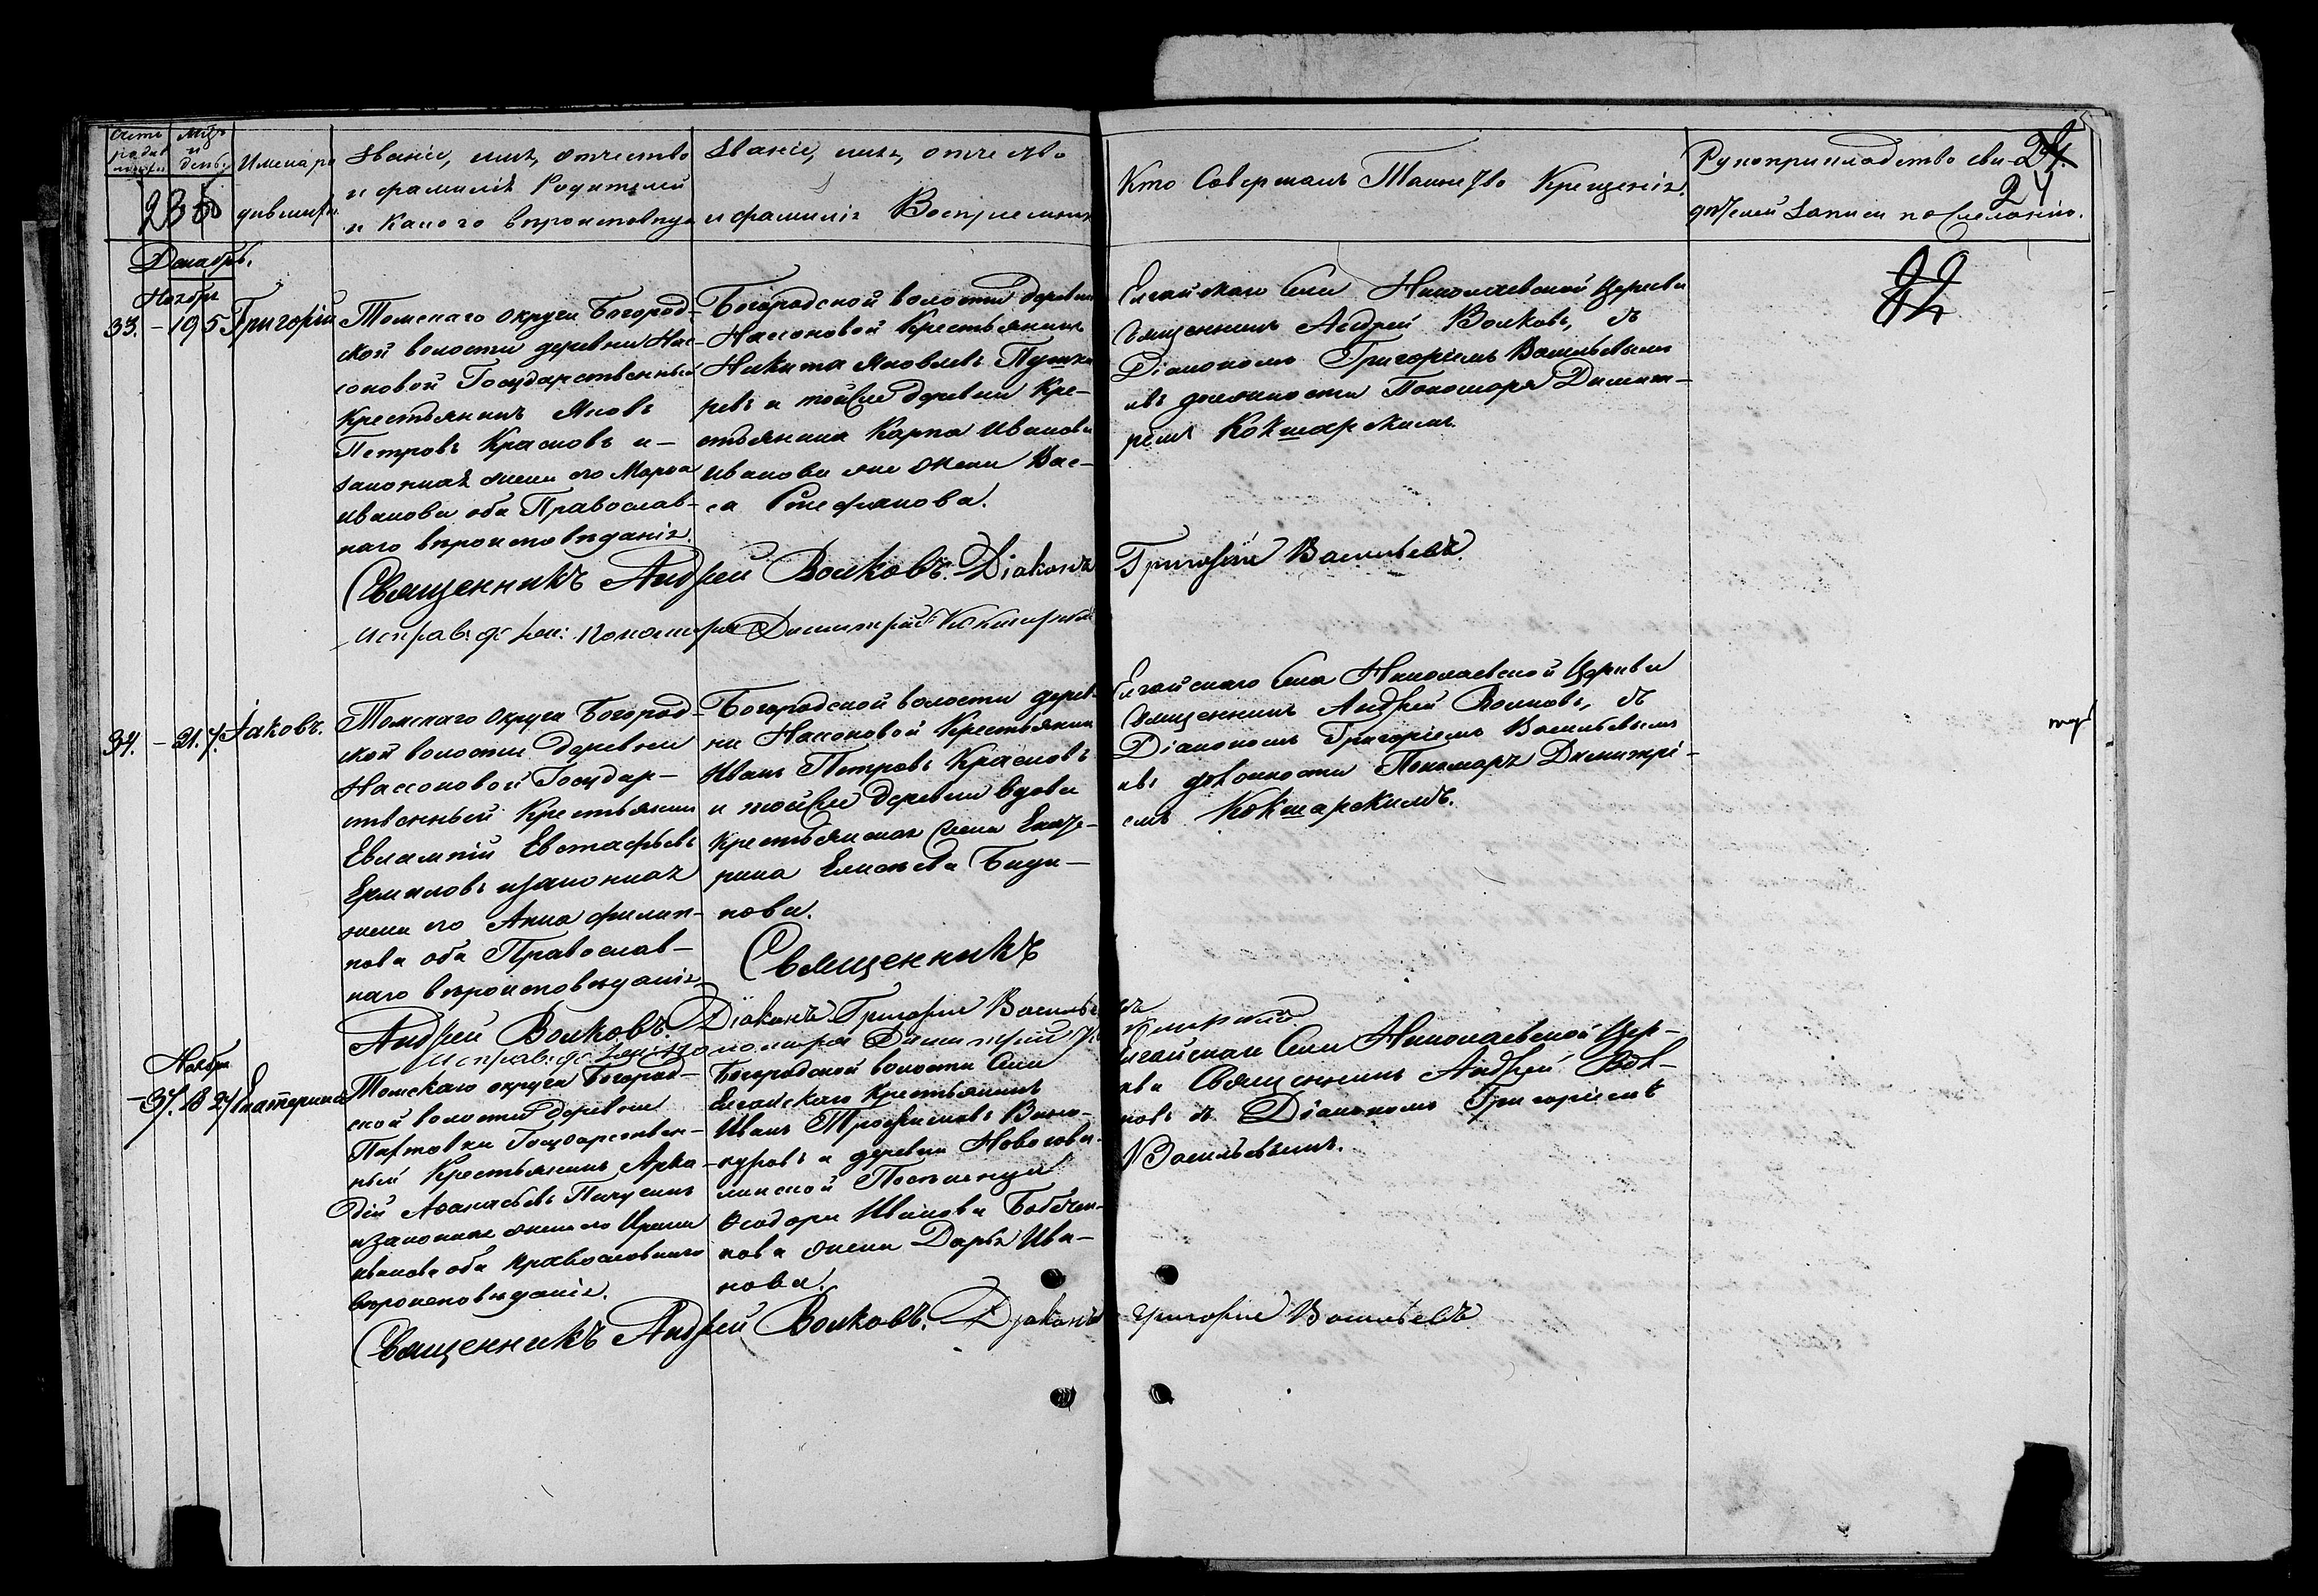 Счетъ родив
Мцъ и день
Имена ро
дившихся
Званіе, имя, отчество
и фамилія Родителей
и какого вѣроисповѣда
Званіе, имя, отчество
и фамилія Воспріемник
Кто Совершалъ Таинство Крещенія.
Рукоприкладство сви-
дѣтелей записи по желанію.
24
Декабрь.
Ноябрь
33. – 19 5 Григорій
Томскаго округа Богород-
ской волости деревни Нас-
соновой Государственный
Крестьянинъ Яковъ
Петровъ Красновъ и –
законная жена его Марѳа
Иванова оба Православ-
наго вѣроисповѣданія.
Богородской волости деревни
Нассоновой Крестьянинъ
Никита Яковлевъ Пушка
ревъ и той же деревни Кре-
стьянина Карпа Иванова
Иванова же жена Вас-
са Стефанова.
Елгайскаго Села Николаевской Церкви
Священникъ Андрей Волковъ, съ
Діакономъ Григоріемъ Васильевымъ
ивъ должности Пономаря Димит-
ремъ Кокшарскимъ.
Священникъ Андрей Волковъ. Діаконъ Григорій Васильевъ.
Исправ: дол: пономаря Димитрій Кокшарскій
34. – 21. 7. Іаковъ.
Томскаго Округа Богород-
ской волости деревни
Нассоновой Государ-
ственный Крестьянинъ
Евлампій Евстафьевъ
Ермиловъ и законная
жена его Анна Филип-
пова оба Православ-
наго вѣроисповѣданія
Богородской волости дерев-
ни Нассоновой Крестьянин
Иванъ Петровъ Красновъ
и той же деревни вдова
крестьянская жена Екате-
рина Елисѣева
нова.
Елгайскаго Села Николаевской Церкви
Священникъ Андрей Волковъ, съ
Діакономъ Григоріемъ Васильевымъ
ивъ должности Пономаря Димитрі-
емъ Кокшарскимъ.
Священникъ
Андрей Волковъ. Діаконъ Григорій Васильевъ
Исправ: дол: пономаря Димитрій Кокшарскій
Ноябрь
Екатерина
Томскаго округа Богород-
ской волости деревни
Государствен-
ный Крестьянинъ Арка-
дій Аѳанасьевъ
и законная жена его Ирина
Иванова оба православнаго
вѣроисповѣданія.
Богородской волости Села
Елгайскаго Крестьянинъ
Иванъ Трофимовъ Вино-
куровъ и деревни
Поселенца
Ѳеодора Иванова
нова жена Дарья Ива-
нова.
Елгайскаго Села Николаевской Цер-
кви Священникъ Андрей Вол-
ковъ съ Діакономъ Григоріемъ
Васильевымъ.
Священникъ Андрей Волковъ. Діаконъ Григорій Васильевъ